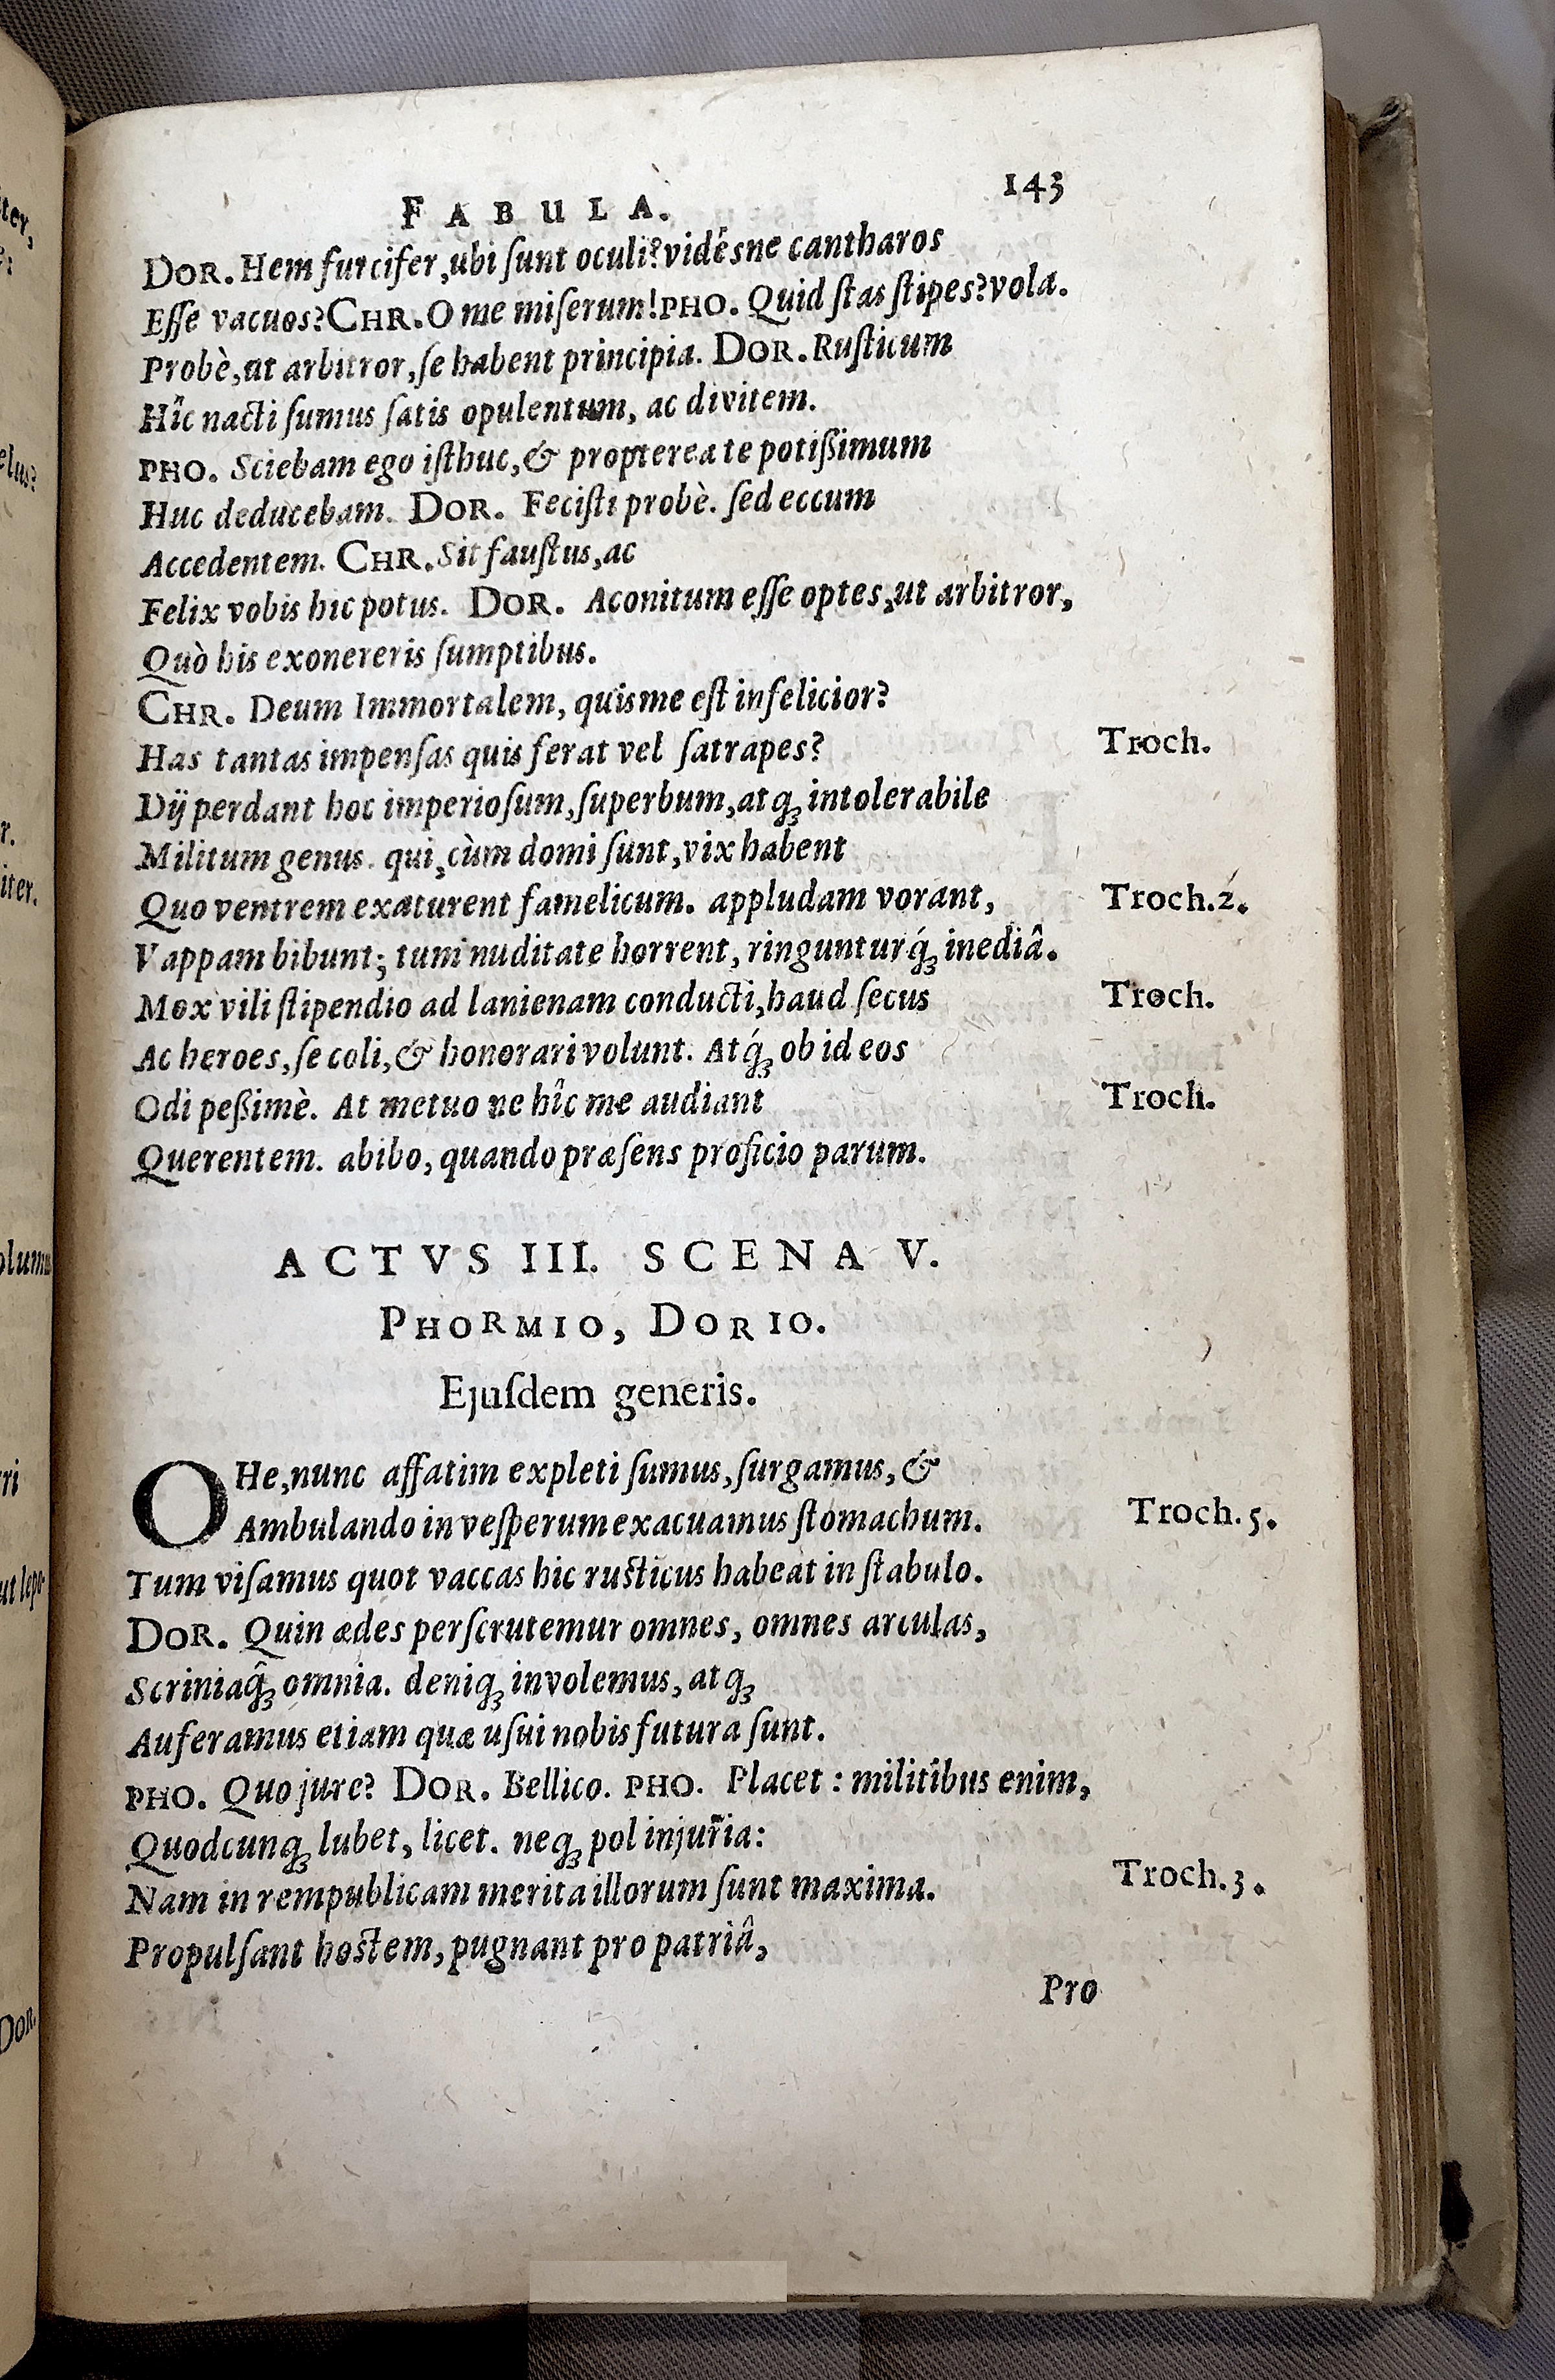 FABULA. 143
DOR. Hem furcifer, ubi ſunt oculi? vidésne cantharos
Eſſe vacuos? CHR. O me miſerum! PHO. Quid ſtas ſtipes? vola.
Probè, ut arbitror, ſe habent principia. DOR. Ruſticum
Hîc nacti ſumus ſatis opulentum, ac divitem.
PHO. Sciebam ego iſthuc, & propterea te potißimum
Huc deducebam. DOR. Feciſti probè. ſed eccum
Accedentem. CHR. Sit fauſtus, ac
Felix vobis hic potus. DOR. Aconitum eſſe optes, ut arbitror,
Quò his exonereris ſumptibus.
CHR. Deum Immortalem, quis me eſt infelicior?
Has tantas impenſas quis ferat vel ſatrapes? Troch.
Dij perdant hoc imperioſum, ſuperbum, atq; intolerabile
Militum genus. qui, cùm domi ſunt, vix habent
Quo ventrem exaturent famelicum. appludam vorant, Troch. 2.
Vappam bibunt; tum nuditate horrent, ringunturq́; inediâ.
Mox vili ſtipendio ad lanienam conducti, haud ſecus Troch.
Ac heroes, ſe coli, & honorari volunt. Atq́; ob id eos
Odi peßimè. At metuo ne hîc me audiant Troch.
Querentem. abibo, quando præſens proficio parum.
ACTVS III. SCENA V.
PHORMIO, DORIO.
Ejuſdem generis.
OHe, nunc affatim expleti ſumus, ſurgamus, &
Ambulando in veſperum exacuamus ſtomachum. Troch. 5.
Tum viſamus quot vaccas hic ruſticus habeat in ſtabulo.
DOR. Quin ædes perſcrutemur omnes, omnes arculas,
Scriniaq̂; omnia. deniq; involemus, atq;
Auferamus etiam quæ uſui nobis futura ſunt.
PHO. Quo jure? DOR. Bellico. PHO. Placet: militibus enim,
Quodcunq; lubet, licet. neq; pol injuria:
Nam in rempublicam merita illorum ſunt maxima. Troch. 3.
Propulſant hoſtem, pugnant pro patriâ,
Pro